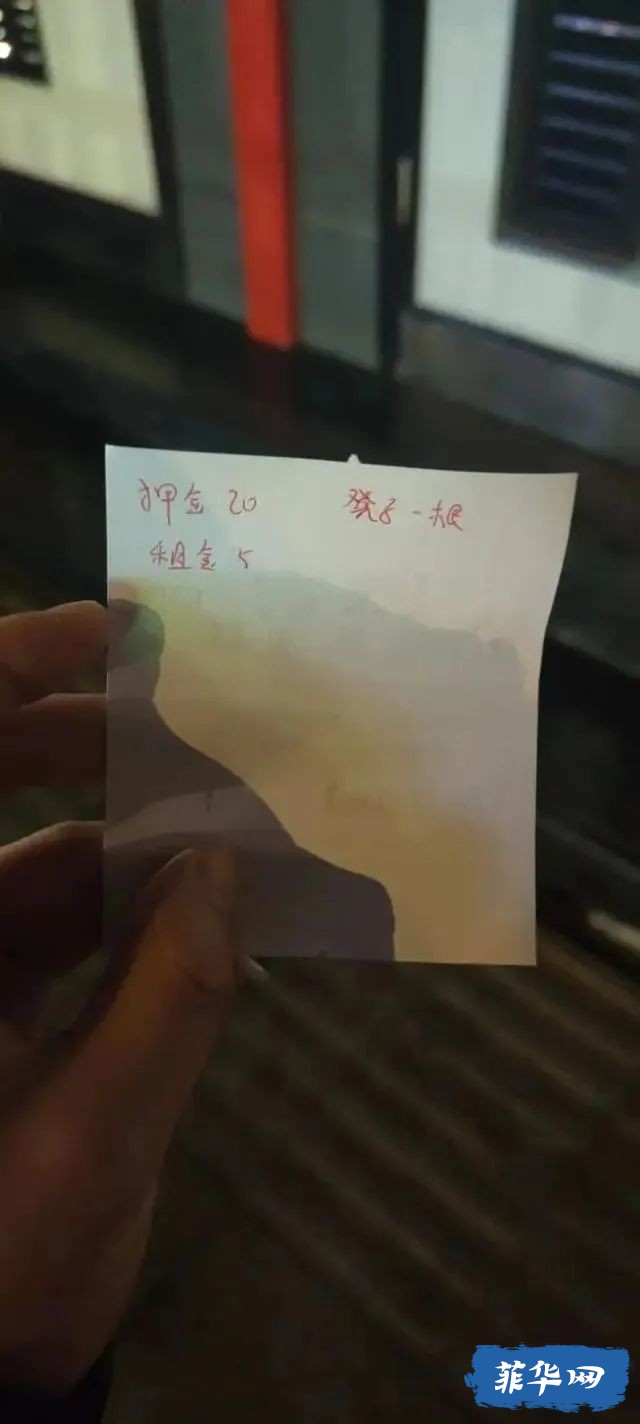 押金 20
凳子一根
租金 5
菲华网